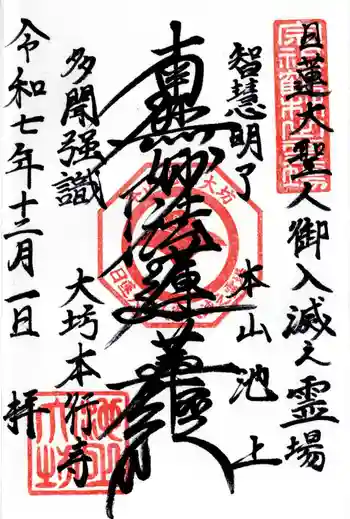 日蓮大聖人御入滅之霊場
智慧明了
本山池上
南無妙法蓮華経
多聞強識
大坊本行寺
令和七年十二月一日
拝